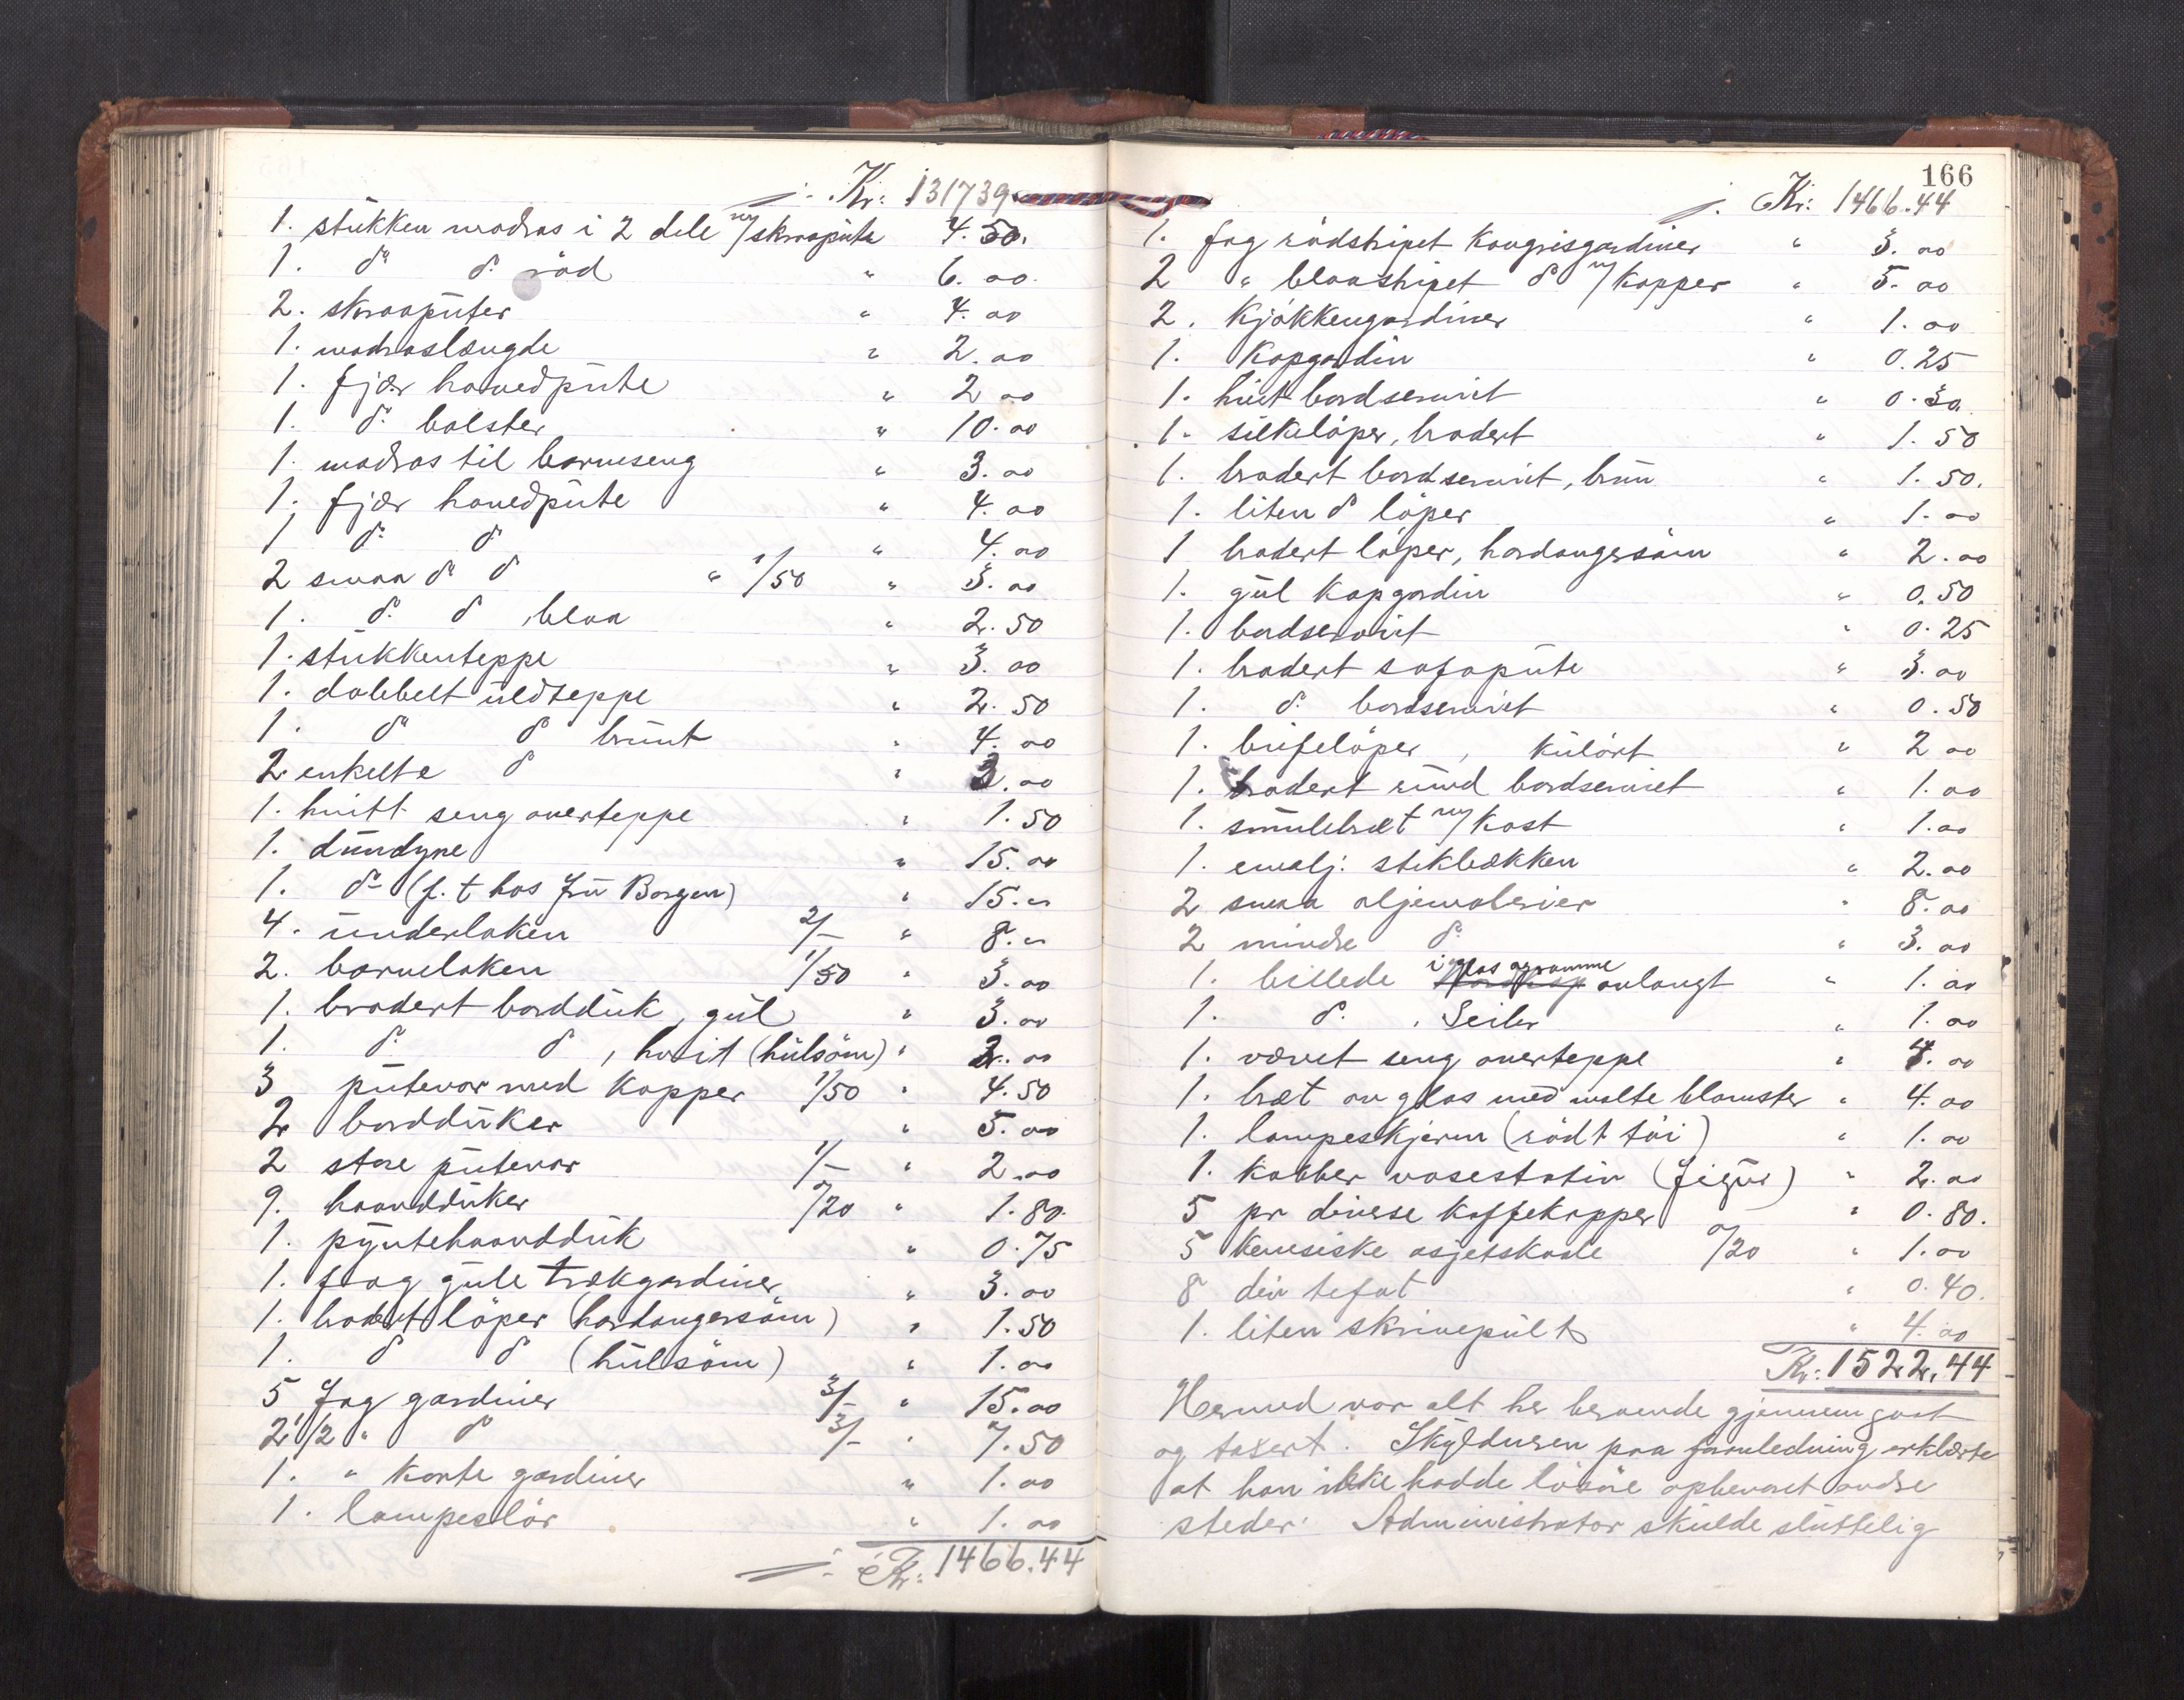 j. Kr: 131739
1. stükken madras i 2 dele m/skraapüte 4.50.
1. do do röd " 6.00.
2. skraapüter " 4.00
1. madraslængde " 2.00
1. fjær hovedpüte " 2 00
1. do bolster " 10.00
1. madras til barneseng " 3.00
1. fjær hovedpüte " 4.00
1 do do " 4.00
2 smaa do do " 1/50 " 3.00
1. do do blaa " 2.50
1. stükkenteppe " 3.00
1. dobbelt üldteppe " 2.50
1. do do brünt " 4.00
2 enkelte do " 3.00
1. hvitt seng overteppe " 1.50
1. dündyne " 15.00
1. do (f. t hos frü Borgen) " 15."
4. ünderlaken 2/- " 8."
2. barnelaken 1/50 " 3.00
1. brodert borddük, gül " 3.00
1. do do, hvit (hülsöm) " 2.00
3 pütevar med kapper 1/50 " 4.50
2 borddüker " 5.00
2 store pütevar 1/- " 2.00
9. haandklüker 0/20 " 1.80.
1. pyntehaanddük " 0.75
1. fag güle trækgardiner " 3.00
1. brodert löper (hardangersöm) " 1.50
1. do do (hülsöm) " 1.00
5 fag gardiner 3/- " 15.00
2 1/2 " do 3/- " 7.50
1. " korte gardiner " 1.00
1. lampeslör " 1.00
j. Kr: 1466.44
166
j. Kr: 1466.44
1. fag rödstripet kongrisgardiner " 3.00
2 " blaastripet do m/kapper " 5.00
2. kjökkengardiner " 1.00
1. kapgardin " 0.25
1. hvit bordserviet " 0.30
1. silkelöper, brodert " 1.50
1. brodert bordserviet, brün " 1.50.
1. liten do löper " 1.00
1 brodert löper, hardangersöm " 2.00
1. gül kapgardin " 0.50
1. bordserviet " 0.25
1. brodert sofapüte " 3.00
1. do bordserviet " 0.50
1. büfelöper, külört " 2 00
1. brodert ründ bordserviet " 1.00
1. smülebræt m/kost " 1.00
1. emalj. stikbækken " 2.00
2 smaa oljemalerier " 8.00
2 mindre do " 3.00
1. billede i glas og ramme avlangt " 1.00
1. do, Seiler " 1.00
1. vævet seng overteppe " 4.00
1. bræt av glas med malte blomster " 4.00
1. lampeskjerm (rödt töi) " 1.00
1. kobber vasestativ (figür) " 2.00
5 pr diverse kaffekopper " 0.80.
5 kinesiske asjetskaale 0/20 " 1.00
8 div tefat " 0.40.
1. liten skrivepült " 4.00
Kr: 1522.44
Hermed var alt her beroende gjennemgaat
og taxert. Skyldneren paa foranledning erklærte
at han ikke hadde lösöre opbevaret andre
steder. Administrator skülde slüttelig